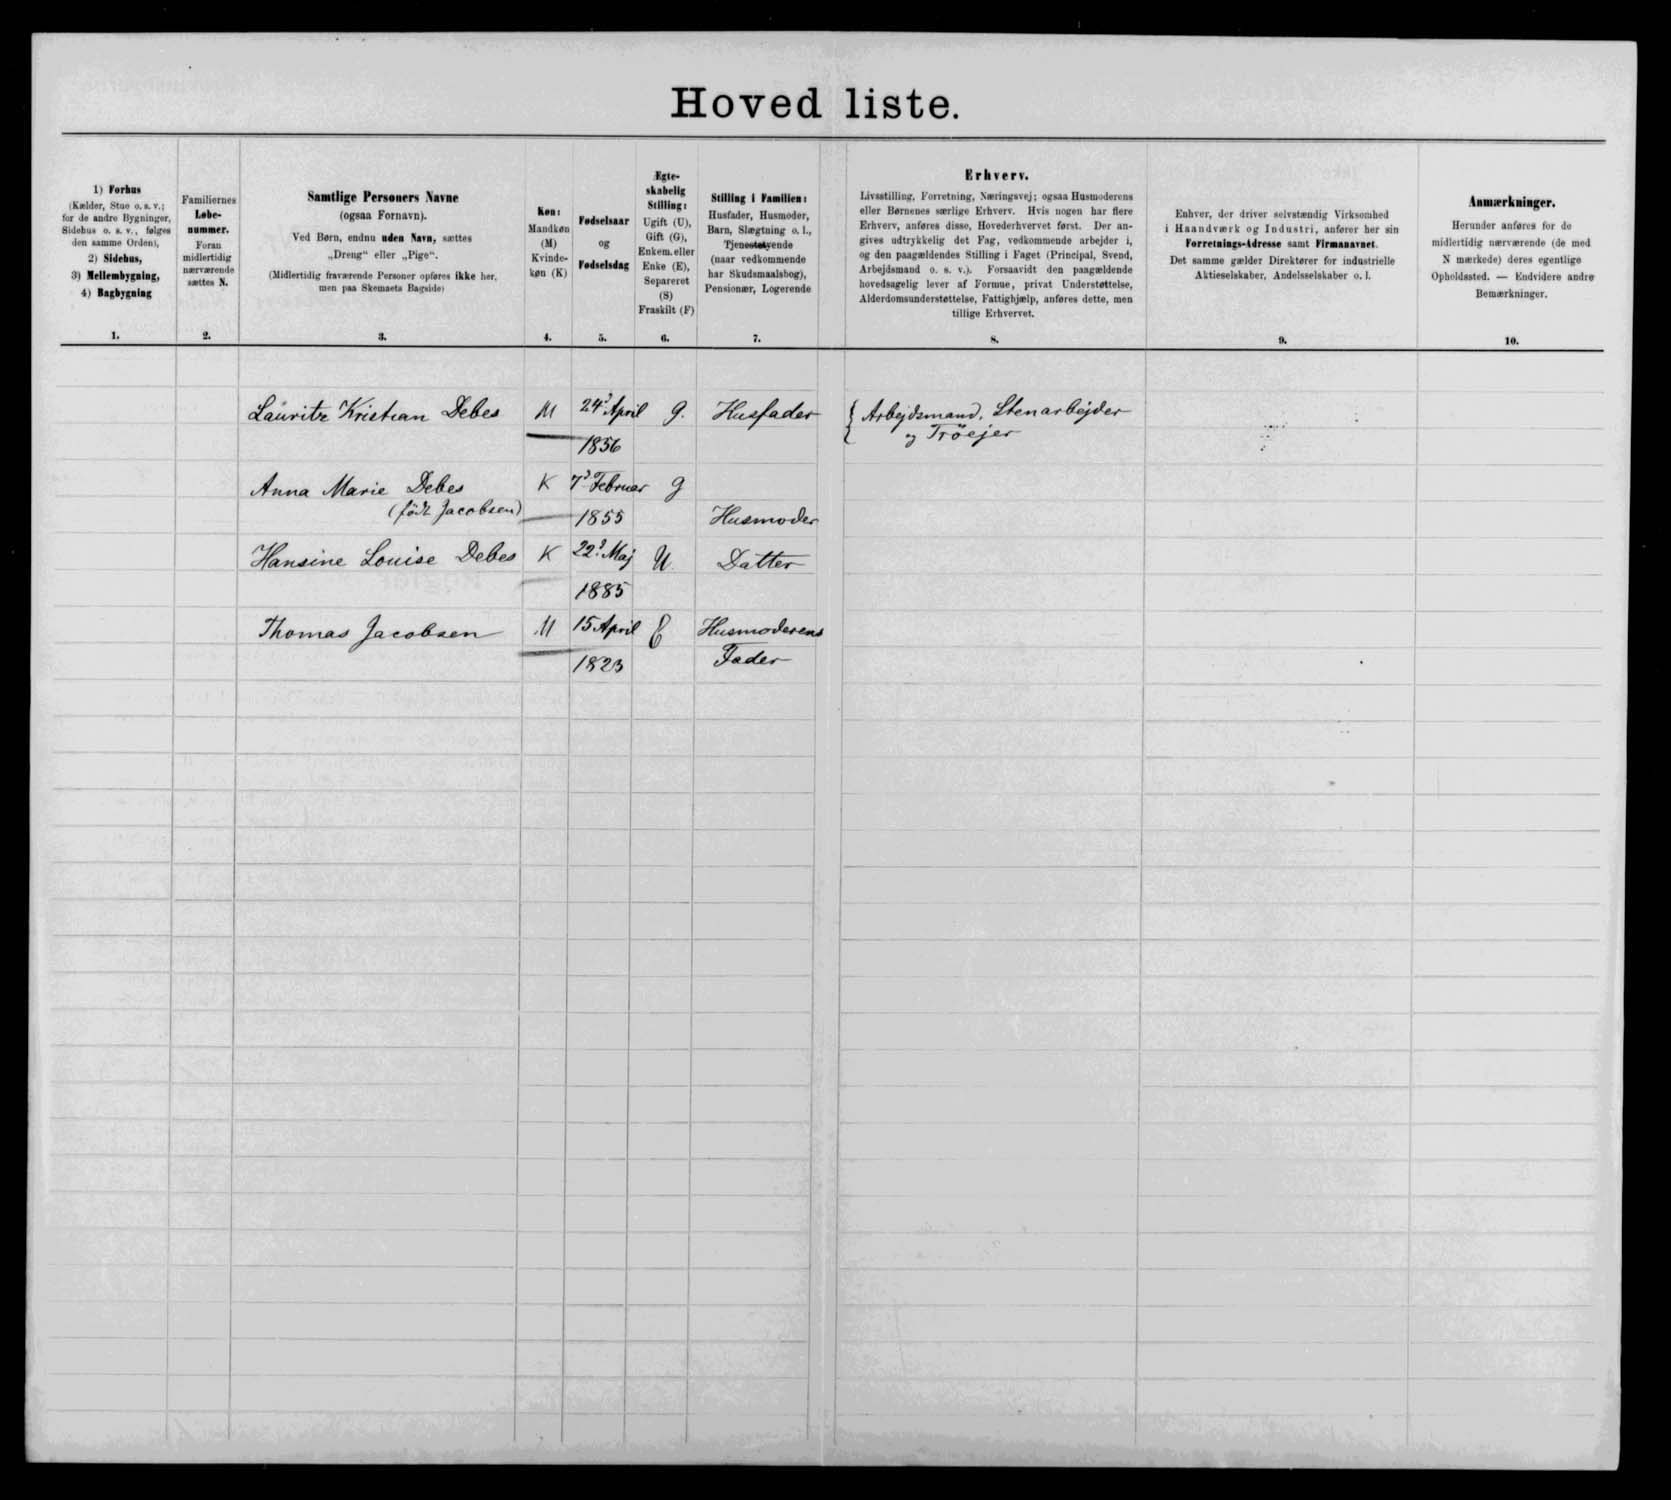 Hovedliste.
1) Forhus
(Kælder, Stue o. s. v.;
for de andre Bygninger,
Sidehus o. s. v., følges
den samme Orden),
2) Sidehus,
3) Mellembygning,
4) Bagbygning
1.
Familiernes
Løbe-
nummer.
Foran
midlertidig
nærværende
sættes N.
2.
Samtlige Personers Navne
(ogsaa Fornavn).
Ved Børn, endnu uden Navn, sættes
„Dreng“ eller „Pige“.
(Midlertidig fraværende Personer opføres ikke her,
men paa Skemaets Bagside)
3.
Køn:
Mandkøn
(M)
Kvinde-
køn (K)
4.
Fødselsaar
og
Fødselsdag
5.
Ægte-
skabelig
Stilling:
Ugift (U),
Gift (G),
Enkem. eller
Enke (E),
Separeret
(S)
Fraskilt (F)
6.
Stilling i Familien:
Husfader, Husmoder,
Barn, Slægtning o. l.,
Tjenestetyende
(naar vedkommende
har Skudsmaalsbog),
Pensionær, Logerende
7.
Erhverv.
Livsstilling, Forretning, Næringsvej; ogsaa Husmoderens
eller Børnenes særlige Erhverv. Hvis nogen har flere
Erhverv, anføres disse, Hovederhvervet først. Der an-
gives udtrykkelig det Fag, vedkommende arbejder i,
og den paagældendes Stilling i Faget (Principal, Svend,
Arbejdsmand o. s. v.). Forsaavidt den paagældende
hovedsagelig lever af Formue, privat Understøttelse,
Alderdomsunderstøttelse, Fattighjælp, anføres dette, men
tillige Erhvervet.
8.
Enhver, der driver selvstændig Virksomhed
i Haandværk og Industri, anfører her sin
Forretnings-Adresse samt Firmanavnet.
Det samme gælder Direktører for industrielle
Aktieselskaber, Andelsselskaber o. l.
9.
Anmærkninger.
Herunder anføres for de
midlertidig nærværende (de med
N mærkede) deres egentlige
Opholdssted. — Endvidere andre
Bemærkninger.
10.
Lauritz Kristian Debes M 24d April G. Husfader Arbejdsmand. Stenarbejder
1856 og Tröejer
Anna Marie Debes K 7d Februar G
(födt Jacobsen) 1855 Husmoder
Hansine Louise Debes K 22d Maj U. Datter
1885
Thomas Jacobsen M 15 April E Husmoderens
1823 Fader